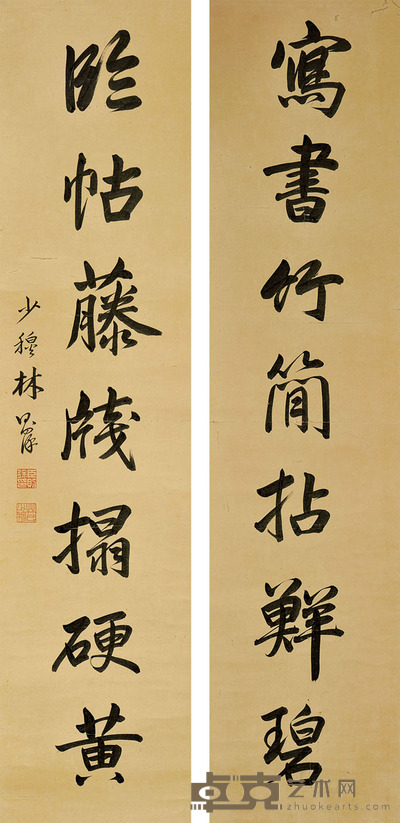 寫書竹簡拈鮮碧
臨帖藤牋搨硬黃
少穆林則徐
卓克艺术网
zhuokearts.com